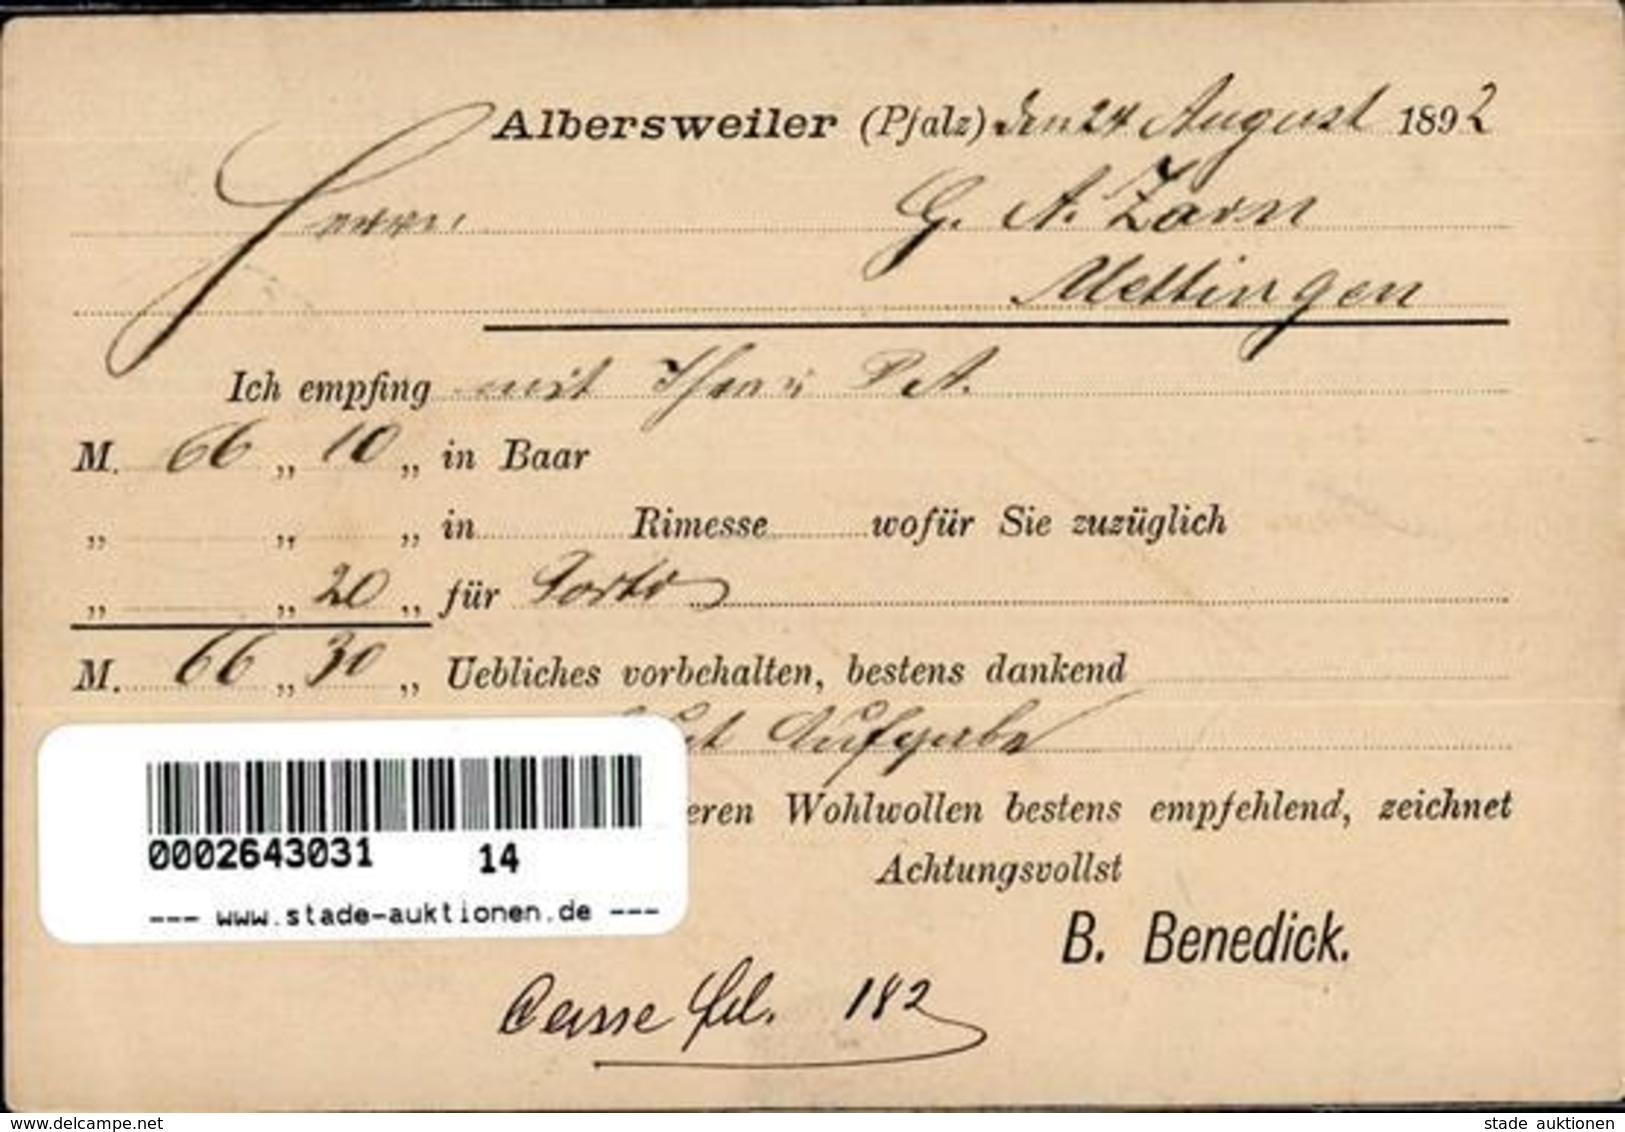 Albersweiler (Pfalz) den 24 August 1892
Herrn
G. A. Zarn
Mettingen
Ich empfing mit Ihrer P. A.
M. 66 „ 10 „ in Baar
„ „ „ in Rimesse wofür Sie zuzüglich
„ „ 20 „ für Porto
M. 66 „ 30 „ Uebliches vorbehalten, bestens dankend
Gut Aufgabe
eren Wohlwollen bestens empfehlend, zeichnet
Achtungsvollst
B. Benedick.
0002643031 14
--- www.stade-auktionen.de ---
Casse fol. 182
www.delcampe.net
stade auktionen